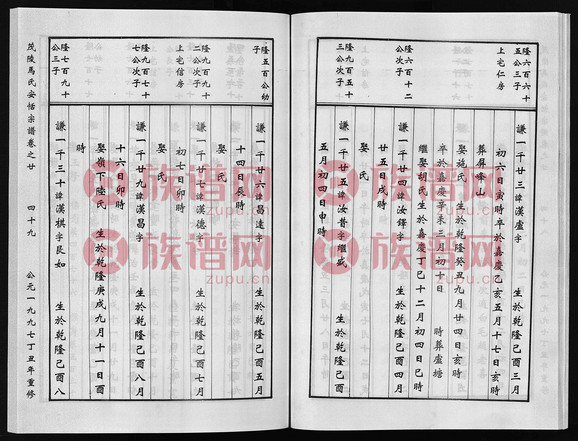 隆六百六十
五公三子
上宅仁房
謙一千廿三諱漢盧字　生於乾隆己酉三月
初六日寅時卒於嘉慶乙亥五月十七日亥時
葬彝峰山
娶施氏　生於乾隆癸丑九月廿四日亥時
卒於嘉慶辛未三月初十日　時葬盧塘
繼娶胡氏　生於嘉慶丁巳十二月初四日巳時
隆六百十二
公次子
謙一千廿四諱汝鐸字　生於乾隆己酉四月
廿五日戌時
隆九百十五
三公次子
謙一千廿五諱汝昔字繼盛　生於乾隆己酉
五月初四日申時
隆五百公幼
子
謙一千廿六諱昌達字　生於乾隆己酉五月
十四日辰時
娶　氏
隆九百九十
二公次子
上宅信房
謙一千廿七諱漢德字　生於乾隆己酉七月
初七日卯時
娶　氏
隆九百七十
七公次子
謙一千廿九諱漢昌字　生於乾隆己酉八月
十六日卯時
娶嶺下陸氏　生於乾隆庚戌九月十一日酉
時
隆七百九十
公三子
謙一千三十諱漢棋字艮如　生於乾隆己酉八
茂陵馬氏安恬宗譜卷之廿　四十九　公元一九九七丁丑年重修
族谱网
zupu.cn
族谱网
zupu.cn
族谱网
zupu.cn
族谱网
zupu.cn